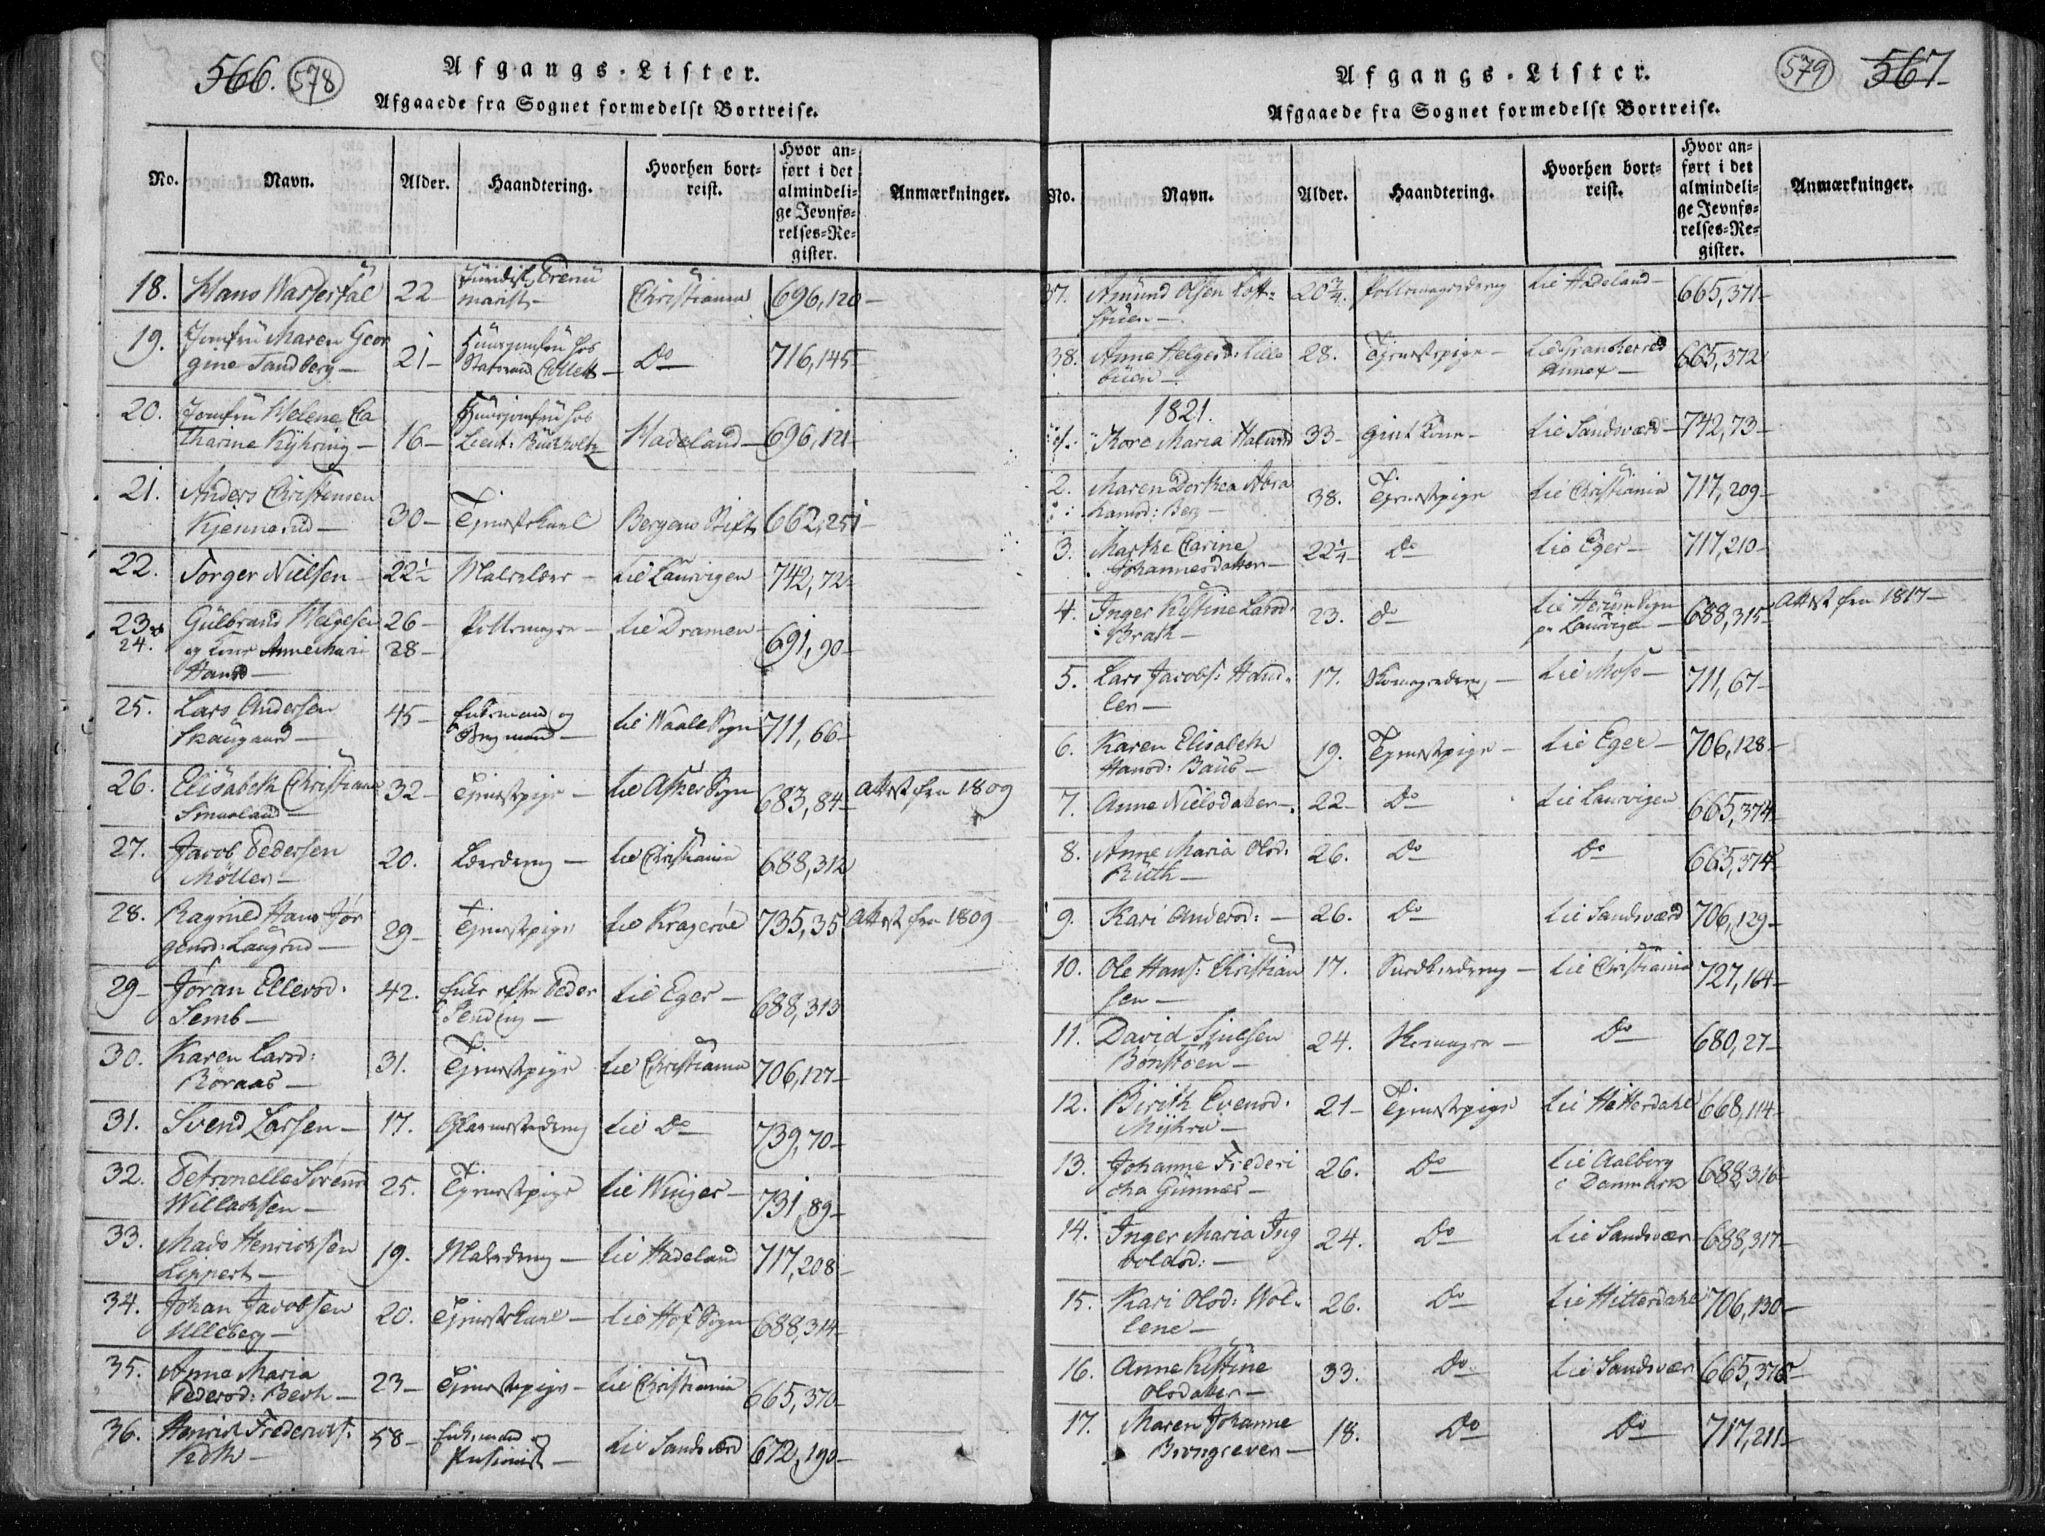 566. 578
Afgangs-Lister.
Afgaaede fra Sognet formedelst Bortreise.
No.
Navn.
Alder.
Haandtering.
Hvorhen bort-
reist.
Hvor an-
ført i det
almindeli-
ge Jevnfø-
relses-Re-
gister.
Anmærkninger.
18. Hans Wasserfal 22 Christiania 696,120
19. Jomfru Maren Geor
gine Sandberg 21 Do 716,145
20. Jomfru Helene Ca
tharine Kyhring 16 Lieut: Buchholtz Hadeland 696,121
21. Anders Christensen
Kjennerud 30 Tjenestekarl Bergens Stift 662,251
22. Torger Nielsen 22½ til Laurvigen 742,72
23 Gulbrand Helgesen 26 Pottemager til Dramen 691,90
24. og Kone Anne Mari 28
Hansd
25. Lars Andersen
Skaugaard 45 Enkemand og
Bergmand til Waale Sogn 711,66
26. Elisabeth Christians
Smaaland 32 Tjenestepige til Asker Sogn 683,84 Attest fra 1809
27. Jacob Pedersen
Möller 20. til Christiania 688,312
28. Ragnild Hans Jör
gensd: Laugrud 29 Tjenestepige til Kragerøe 735,35 Attest fra 1809
29 Jöran Ellevsd:
Semb 42. Enke efter Peder til Eger 688,313
30. Karen Larsd:
Röraas 31. Tjenestepige til Christiania 706,127
31. Svend Larsen 17. til Do 739,70
32. Petronelle Sörens
Willachsen 25. Tjenestepige til Winger 731,89
33. Mads Henrichsen
Lippert 19. Malerdreng til Hadeland 717,208
34. Johan Jacobsen
Ulleberg 20. Tjenestekarl til Hof Sogn 688,314
35. Anne Maria
Pedersd: Berh 23 Tjenestepige til Christiania 665,370
36. Henrich Frederichs:
Koth 58 Enkemand og
Pensionist til Sandsværd 672,190
579 567
Afgangs-Lister.
Afgaaede fra Sognet formedelst Bortreise.
No.
Navn.
Alder.
Haandtering.
Hvorhen bort-
reist.
Hvor an-
ført i det
almindeli-
ge Jevnfø-
relses-Re-
gister.
Anmærkninger.
37. Amund Olsen Loft-
stuen 20¾ Pottemagerdreng til Hadeland 665,371
38. Anne Helgesd: Lille
buen 28. Tjenestepige til Gransherred
Annex 665,372
1821.
1. Kore Maria Halvord 33 gift Kone til Sandsværd 742,73
2. Maren Dorthea Abra
hamsd: Berg 38. Tjenestepige til Christiania 717,209
3. Marthe Carine
Johannesdatter 22¼ Do til Eger 717,210
4. Inger Kistine Larsd:
Brath 23. do til Herum Sogn
pr Laurvigen 688,315 Attest fra 1817
5. Lars Jacobs: Hand-
ler 17. Skomagerdreng til Moss 711,67
6. Karen Elisabeth
Hansd: Baüs 19. Tjenestepige til Eger 706,128
7. Anne Nielsdatter 22 Do til Laurvigen 665,374
8. Anne Maria Olsd:
Ruth 26. Do Do 665,374
9. Kari Andersd: 26. Do til Sandsværd 706,129
10. Ole Hans: Christian
sen 17. til Christiania 727,164
11. David Siulsen
Bonstöen 24. Skomager Do 680,27
12. Bireth Evensd:
Myhra 21 Tjenestepige til Hitterdahl 668,114
13. Johanne Frederi
cha Gunnes 26. Do til Aalborg
i Danmark 688,316
14. Inger Maria Ing
voldsd: 24. Do til Sandsvær 688,317
15. Kari Olsd: Wol-
lene 26. Do til Hitterdahl 706,130
16. Anne Kistine
Olsdatter 33. Do til Sandsvær 665,376
17. Maren Johanne
Brongreven 18. Do Do 717,211